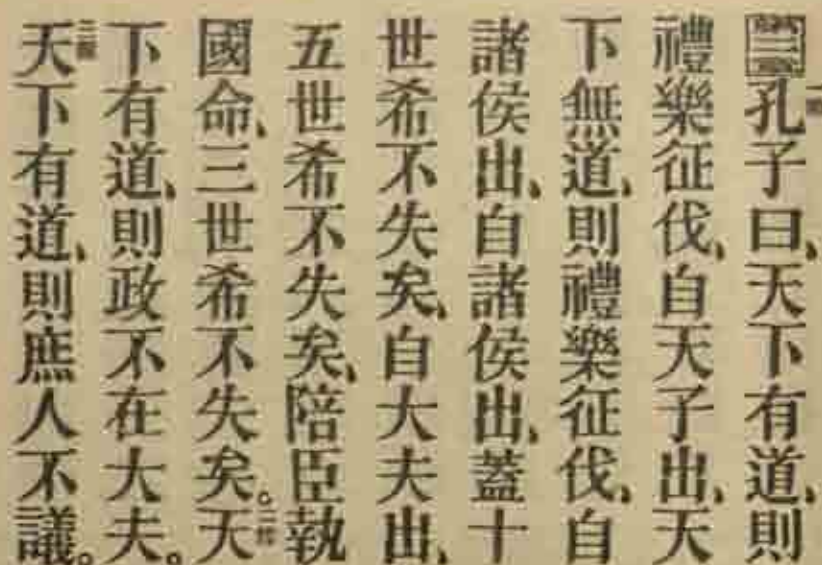 孔子曰、天下有道、則
禮樂征伐、自天子出、天
下無道、則禮樂征伐、自
諸侯出、自諸侯出、蓋十
世希不失矣、自大夫出、
五世希不失矣、陪臣執
國命、三世希不失矣。天
下有道、則政不在大夫。
天下有道、則庶人不議。